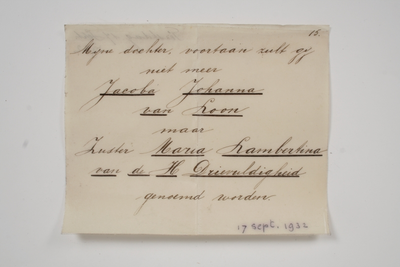 15.
Myne dochter, voortaan zult gy
niet meer
Jacoba Johanna
van Loon
maar
Zuster Maria Lambertina
van de H Drievuldigheid
genoemd worden.
17 sept. 1932